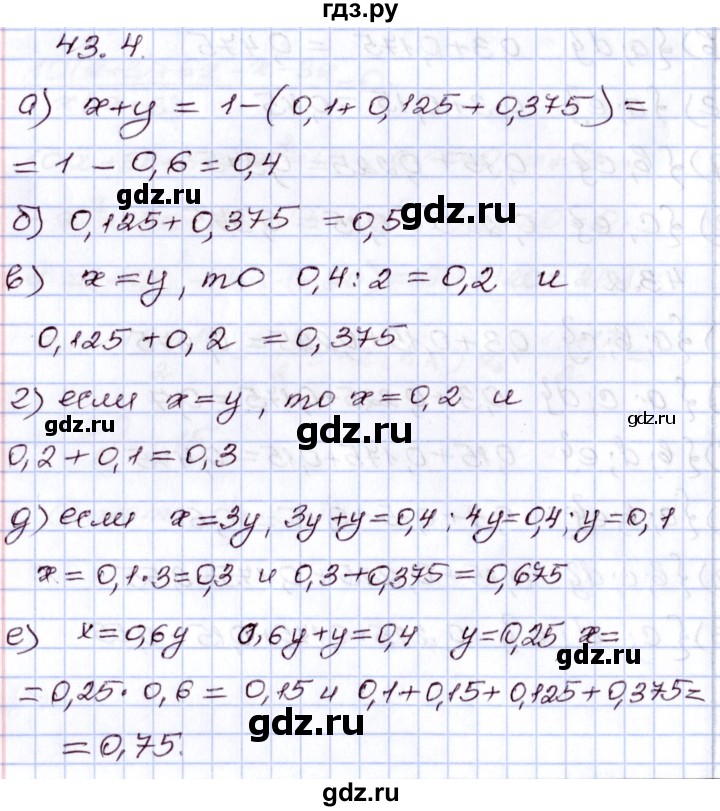 гдз.ру
43.4.
а) x+y = 1-(0,1+0,125+0,375)=
= 1 - 0,6 = 0,4
gdz.ru
gdz.ru
б) 0,125+0,375 = 0,5
в) x=y, то 0,4:2=0,2 и
0,125+0,2 = 0,375
г) если x=y, то x=0,2 и
gdz.ru
gdz.ru
gdz.ru
0,2+0,1=0,3
д) если x=3y, 3y+y=0,4; 4y=0,4; y=0,1
x = 0,1·3=0,3 и 0,3+0,375=0,675
е) x=0,6y 0,6y+y=0,4 y=0,25 x=
gdz.ru
=0,25·0,6 = 0,15 и 0,1+0,15+0,125+0,375=
= 0,75.
gdz.ru
gdz.ru
gdz.ru